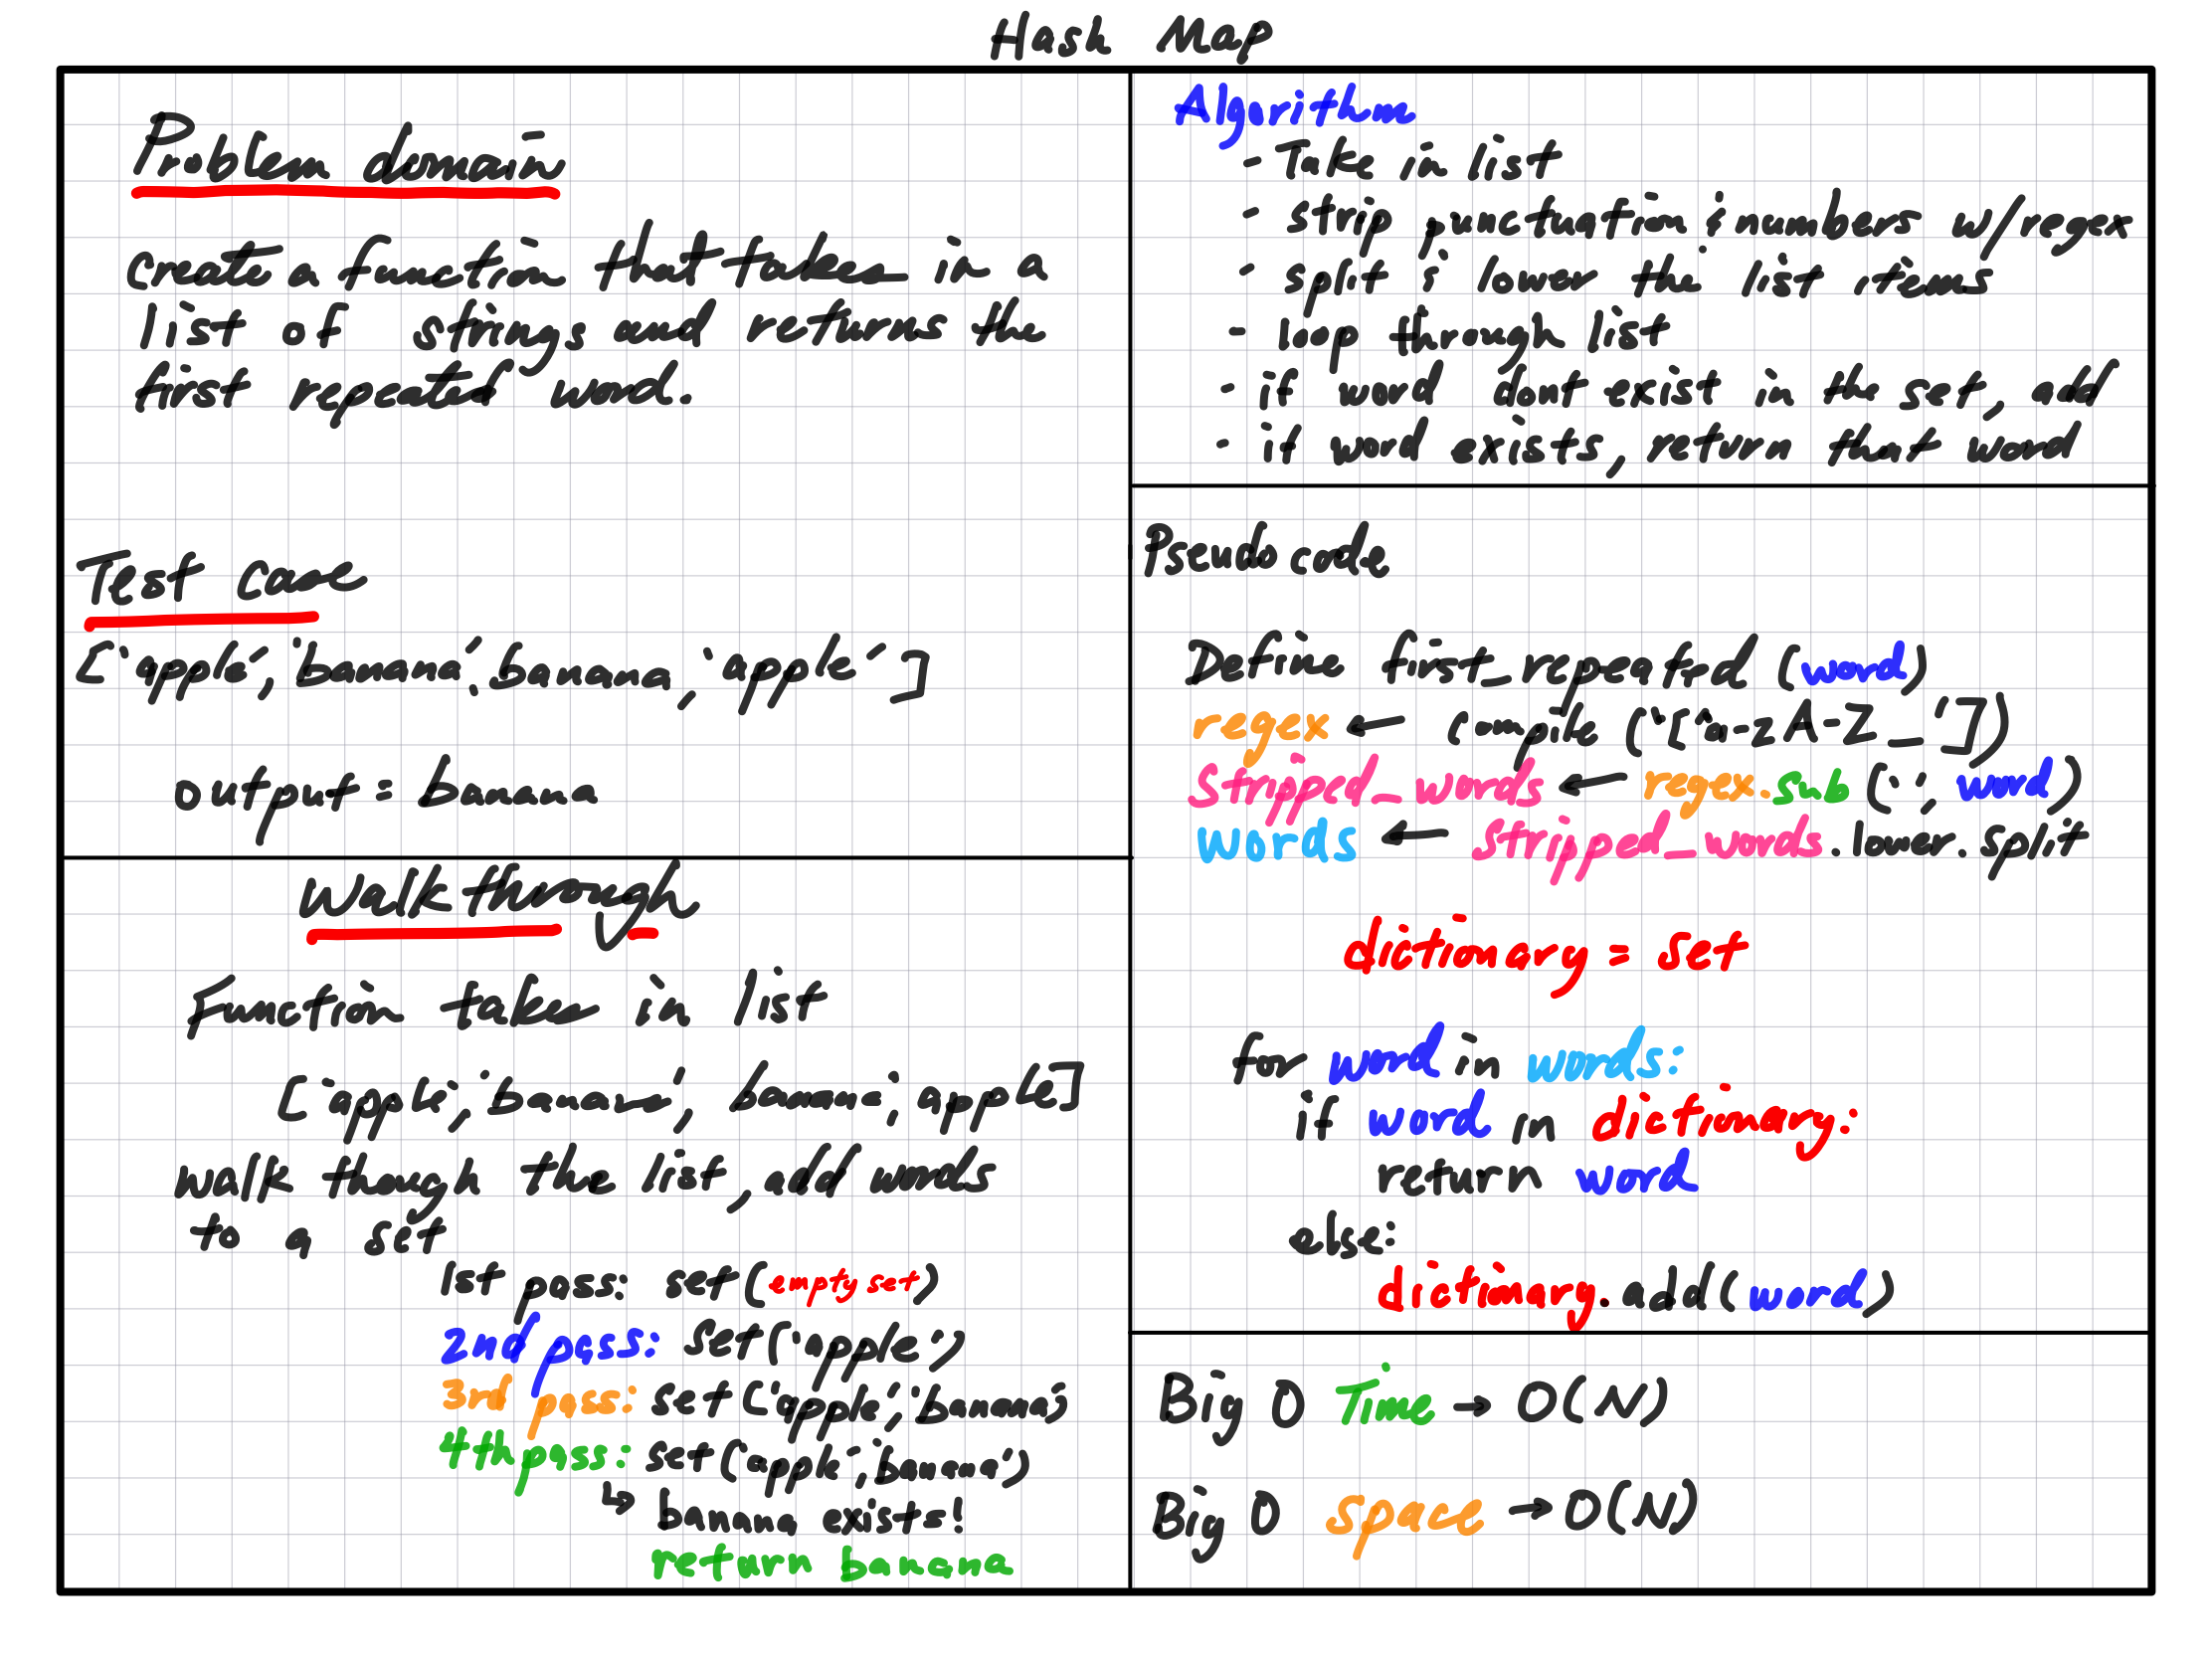 Hash Map
Problem domain
create a function that takes in a
list of strings and returns the
first repeated word.
Test case
['apple', 'banana', banana, 'apple']
output = banana
Walkthrough
Function takes in list
['apple', 'banana', banana, apple]
walk though the list, add words
to a set
1st pass: set(empty set)
2nd pass: set('apple')
3rd pass: set('apple', 'banana')
4th pass: set('apple', 'banana')
↳ banana exists!
return banana
Algorithm
- Take in list
- strip punctuation & numbers w/regex
- split & lower the list items
- loop through list
- if word dont exist in the set, add
- if word exists, return that word
Pseudo code
Define first_repeated (word)
regex ← compile ('[^a-zA-Z_ ']')
Stripped_words ← regex.sub ('', word)
words ← Stripped_words.lower.split
dictionary = set
for word in words:
if word in dictionary:
return word
else:
dictionary.add(word)
Big O Time → O(N)
Big O space → O(N)